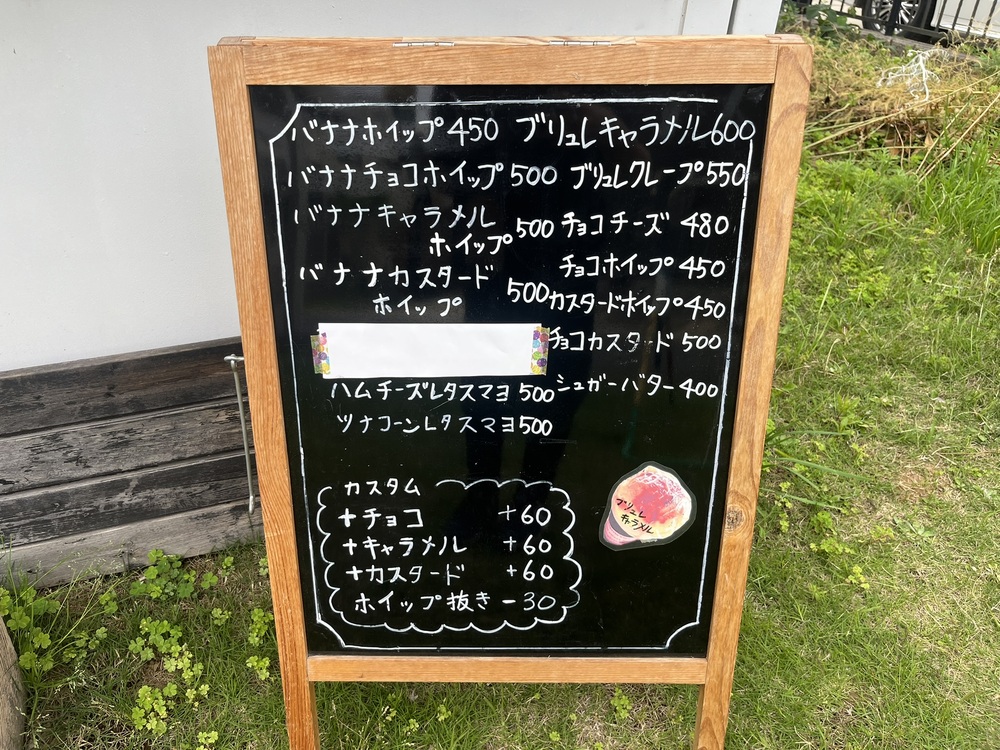 バナナホイップ 450
バナナチョコホイップ 500
バナナキャラメル
ホイップ 500
バナナカスタード
ホイップ 500
ハムチーズレタスマヨ 500
ツナコーンレタスマヨ 500
ブリュレキャラメル 600
ブリュレクレープ 550
チョコチーズ 480
チョコホイップ 450
カスタードホイップ 450
チョコカスタード 500
シュガーバター 400
カスタム
+チョコ +60
+キャラメル +60
+カスタード +60
ホイップ抜き -30
ブリュレ
キャラメル